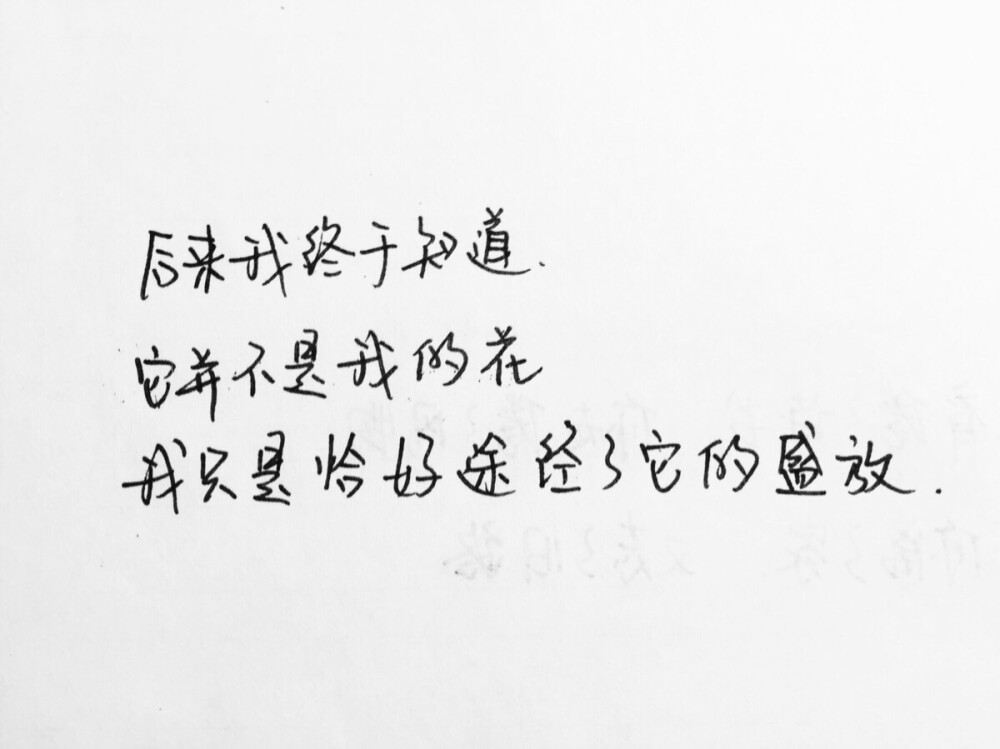 后来我终于知道.
它并不是我的花
我只是恰好途经了它的盛放.